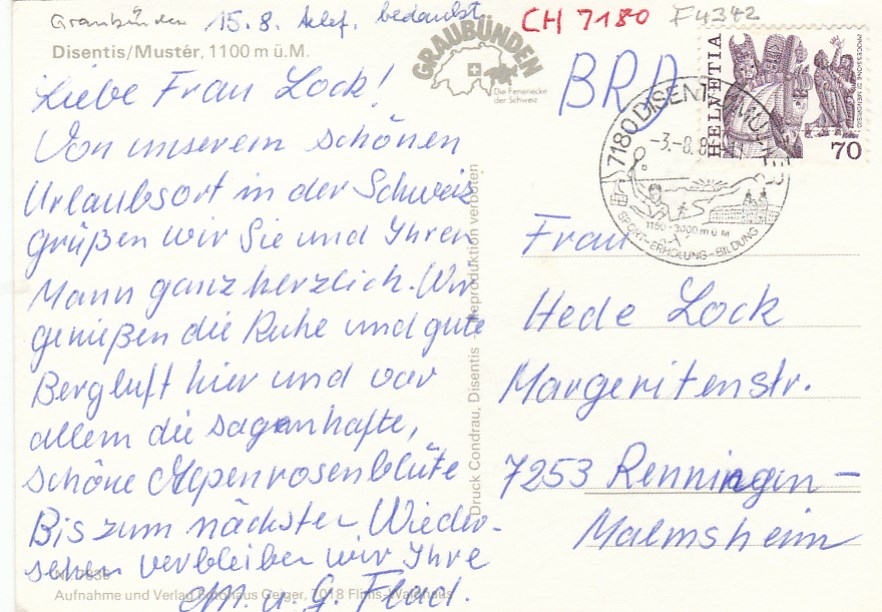 Graubünden 15.8. telef. bedankt
CH 7180 F4342
Disentis/Mustér, 1100 m ü.M.
GRAUBÜNDEN
Die Ferienecke
der Schweiz
BRD
HELVETIA
70
7180 DISENTIS/MUSTER
-3.-8.8
1150-3000 m ü M
SPORT-ERHOLUNG-BILDUNG
Liebe Frau Lock!
Von unserem schönen
Urlaubsort in der Schweiz
grüßen wir Sie und Ihren
Mann ganz herzlich. Wir
genießen die Ruhe und gute
Bergluft hier und vor
allem die sagenhafte,
schöne Alpenrosenblüte
Bis zum nächsten Wieder-
sehen verbleiben wir Ihre
M. u. G. Flad.
Aufnahme und Verlag Fotohaus Geiger, 7018 Flims-Waldhaus
Druck Condrau, Disentis Reproduktion verboten
Frau
Hede Lock
Margeritenstr.
7253 Renningen-
Malmsheim